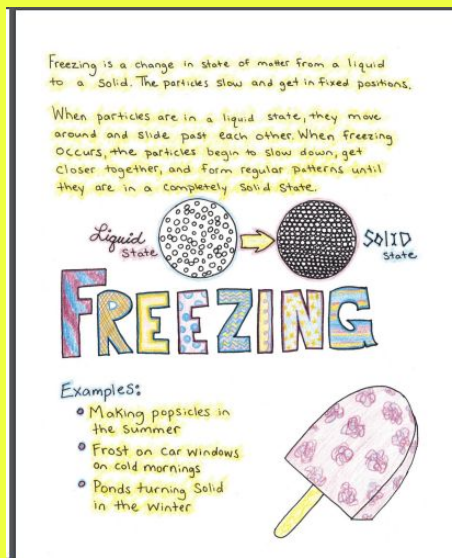 Freezing is a change in state of matter from a liquid
to a solid. The particles slow and get in fixed positions.
When particles are in a liquid state, they move
around and slide past each other. When freezing
occurs, the particles begin to slow down, get
closer together, and form regular patterns until
they are in a completely solid state.
Liquid state
SOLID state
FREEZING
Examples:
Making popsicles in
the summer
Frost on car windows
on cold mornings
Ponds turning solid
in the winter